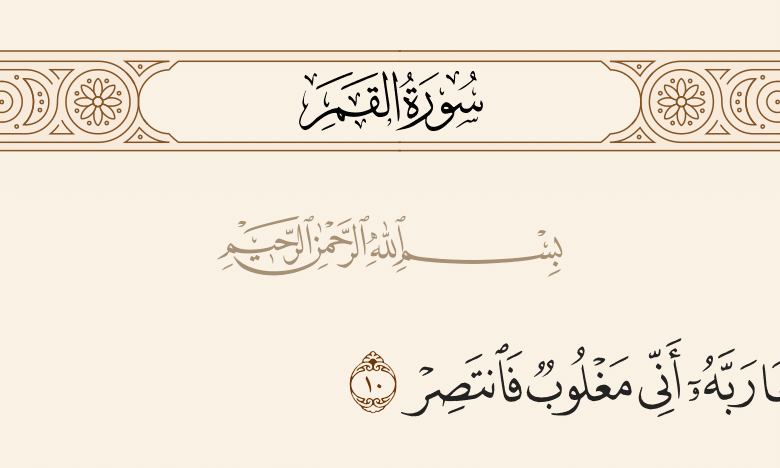 سُورَةُ القَمَر
بِسْمِ ٱللَّهِ ٱلرَّحْمَٰنِ ٱلرَّحِيمِ
رَبَّهُۥٓ أَنِّى مَغْلُوبٌ فَٱنتَصِرْ ١٠